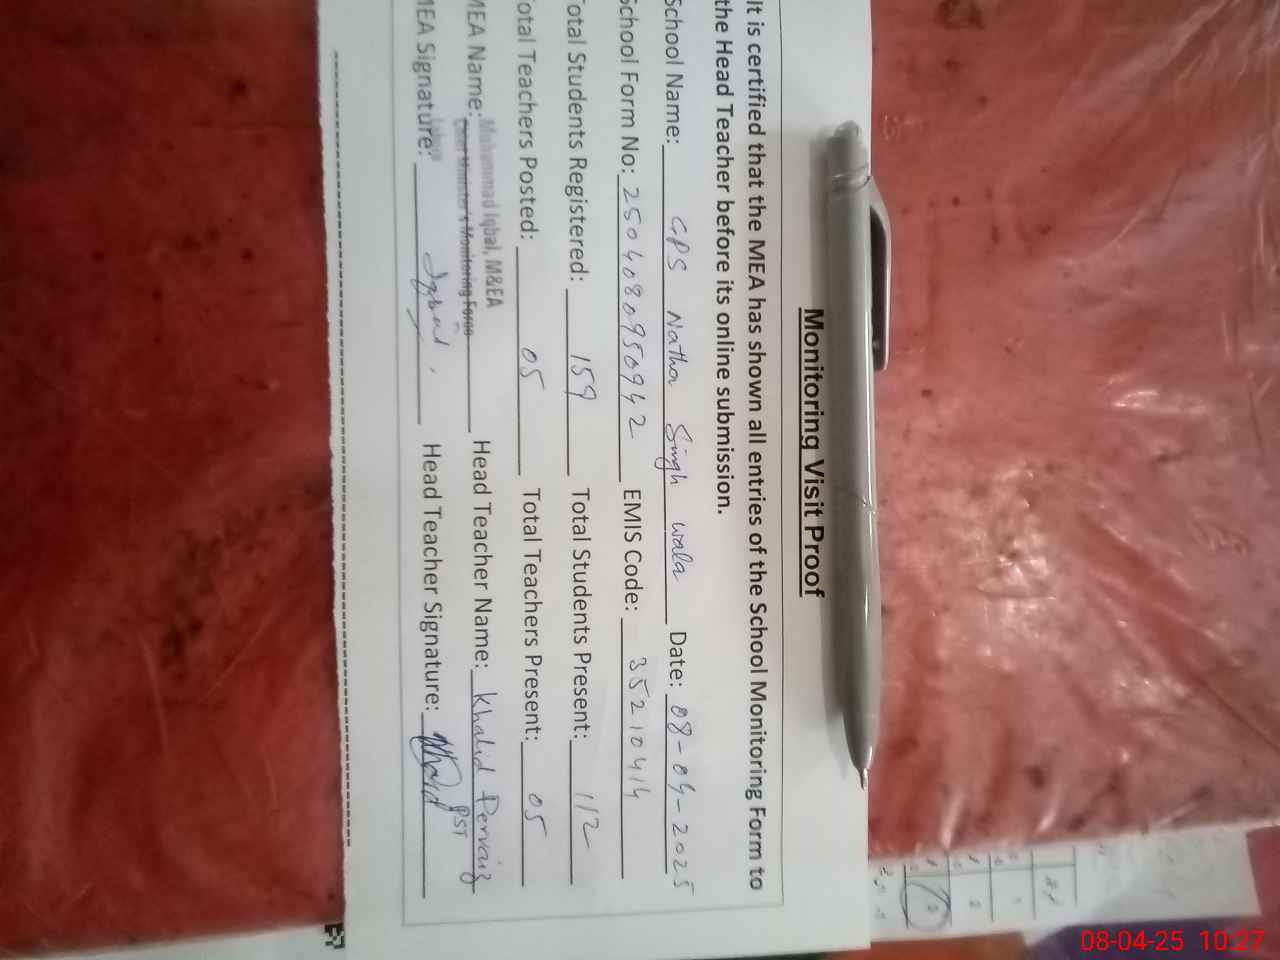 Monitoring Visit Proof
It is certified that the MEA has shown all entries of the School Monitoring Form to
the Head Teacher before its online submission.
School Name: GPS Natha Singh wala Date: 08-04-2025
School Form No: 2504080950942 EMIS Code: 35210414
Total Students Registered: 159 Total Students Present: 112
Total Teachers Posted: 05 Total Teachers Present: 05
MEA Name: Muhammad Iqbal, M&EA Head Teacher Name: Khalid Pervaiz
Chief Minister's Monitoring Force PST
MEA Signature: Iqbal Head Teacher Signature: Khalid
08-04-25 10:27